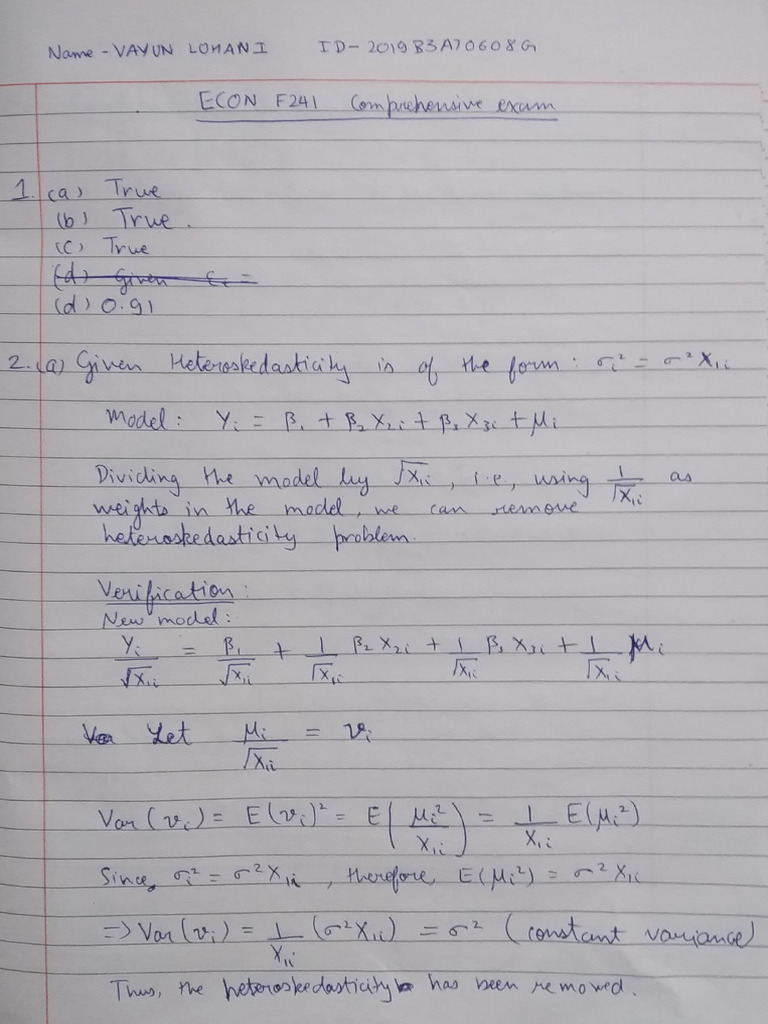 Name - VAYUN LOHANI ID- 2019B3A70608G
ECON F241 Comprehensive exam
1. (a) True
(b) True.
(c) True
(d) Given =
(d) 0.91
2. (a) Given Heteroskedasticity is of the form : σᵢ² = σ²X₁ᵢ
Model : Yᵢ = β₁ + β₂X₂ᵢ + β₃X₃ᵢ + μᵢ
Dividing the model by √X₁ᵢ , i.e., using 1/√X₁ᵢ as
weights in the model, we can remove
heteroskedasticity problem.
Verification :
New model :
Yᵢ/√X₁ᵢ = β₁/√X₁ᵢ + 1/√X₁ᵢ β₂X₂ᵢ + 1/√X₁ᵢ β₃X₃ᵢ + 1/√X₁ᵢ μᵢ
Let μᵢ/√X₁ᵢ = vᵢ
Var(vᵢ) = E(vᵢ)² = E(μᵢ²/X₁ᵢ) = 1/X₁ᵢ E(μᵢ²)
Since, σᵢ² = σ²X₁ᵢ , therefore, E(μᵢ²) = σ²X₁ᵢ
=> Var(vᵢ) = 1/X₁ᵢ (σ²X₁ᵢ) = σ² (constant variance)
Thus, the heteroskedasticity has been removed.